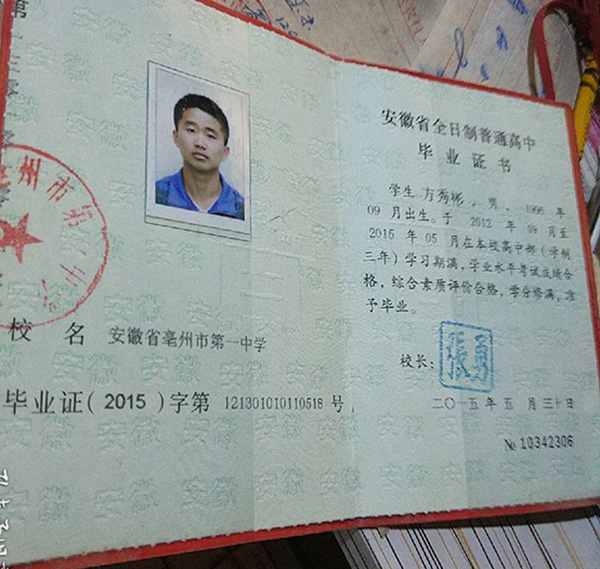 州市第一中
校 名 安徽省亳州市第一中学
毕业证(2015)字第 121301010110518 号
安徽省全日制普通高中
毕业证书
学生 方秀彬 ,男, 1996 年
09 月出生。于 2012 年 09 月至
2015 年 05 月在本校高中部(学制
三年)学习期满,学业水平考试成绩合
格,综合素质评价合格,学分修满,准
予毕业。
校长:
二〇一五年五月三十日
№ 10342306